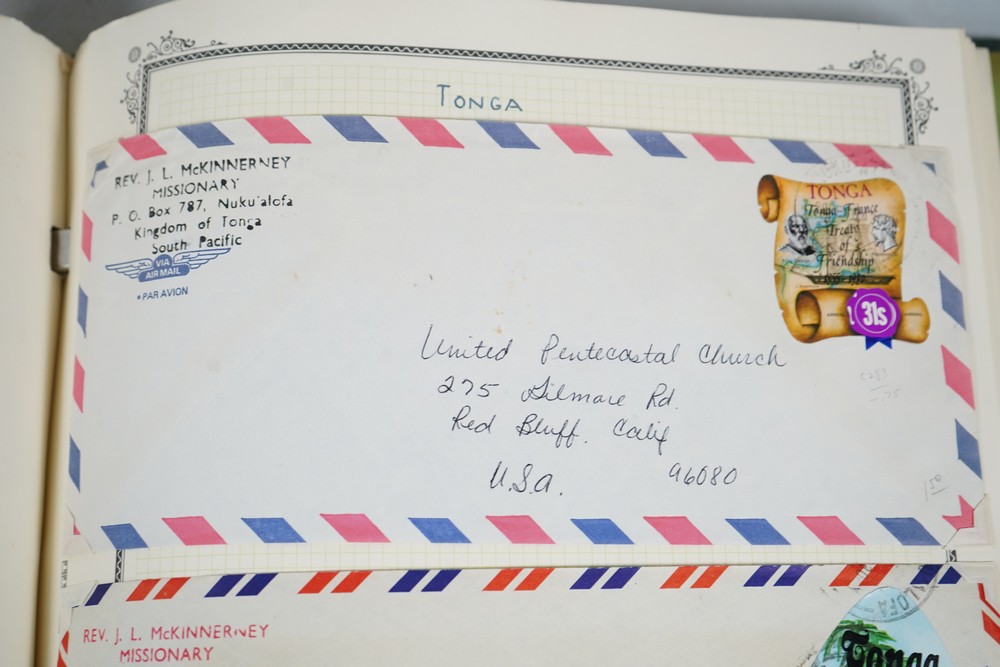 TONGA
REV. J. L. McKINNERNEY
MISSIONARY
P. O. Box 787, Nuku'alofa
Kingdom of Tonga
South Pacific
VIA
AIR MAIL
*PAR AVION
TONGA
Tonga-France
Treaty
of
Friendship
31s
United Pentecostal Church
275 Gilmore Rd.
Red Bluff. Calif
U.S.A. 96080
REV. J. L. McKINNERNEY
MISSIONARY
Tonga